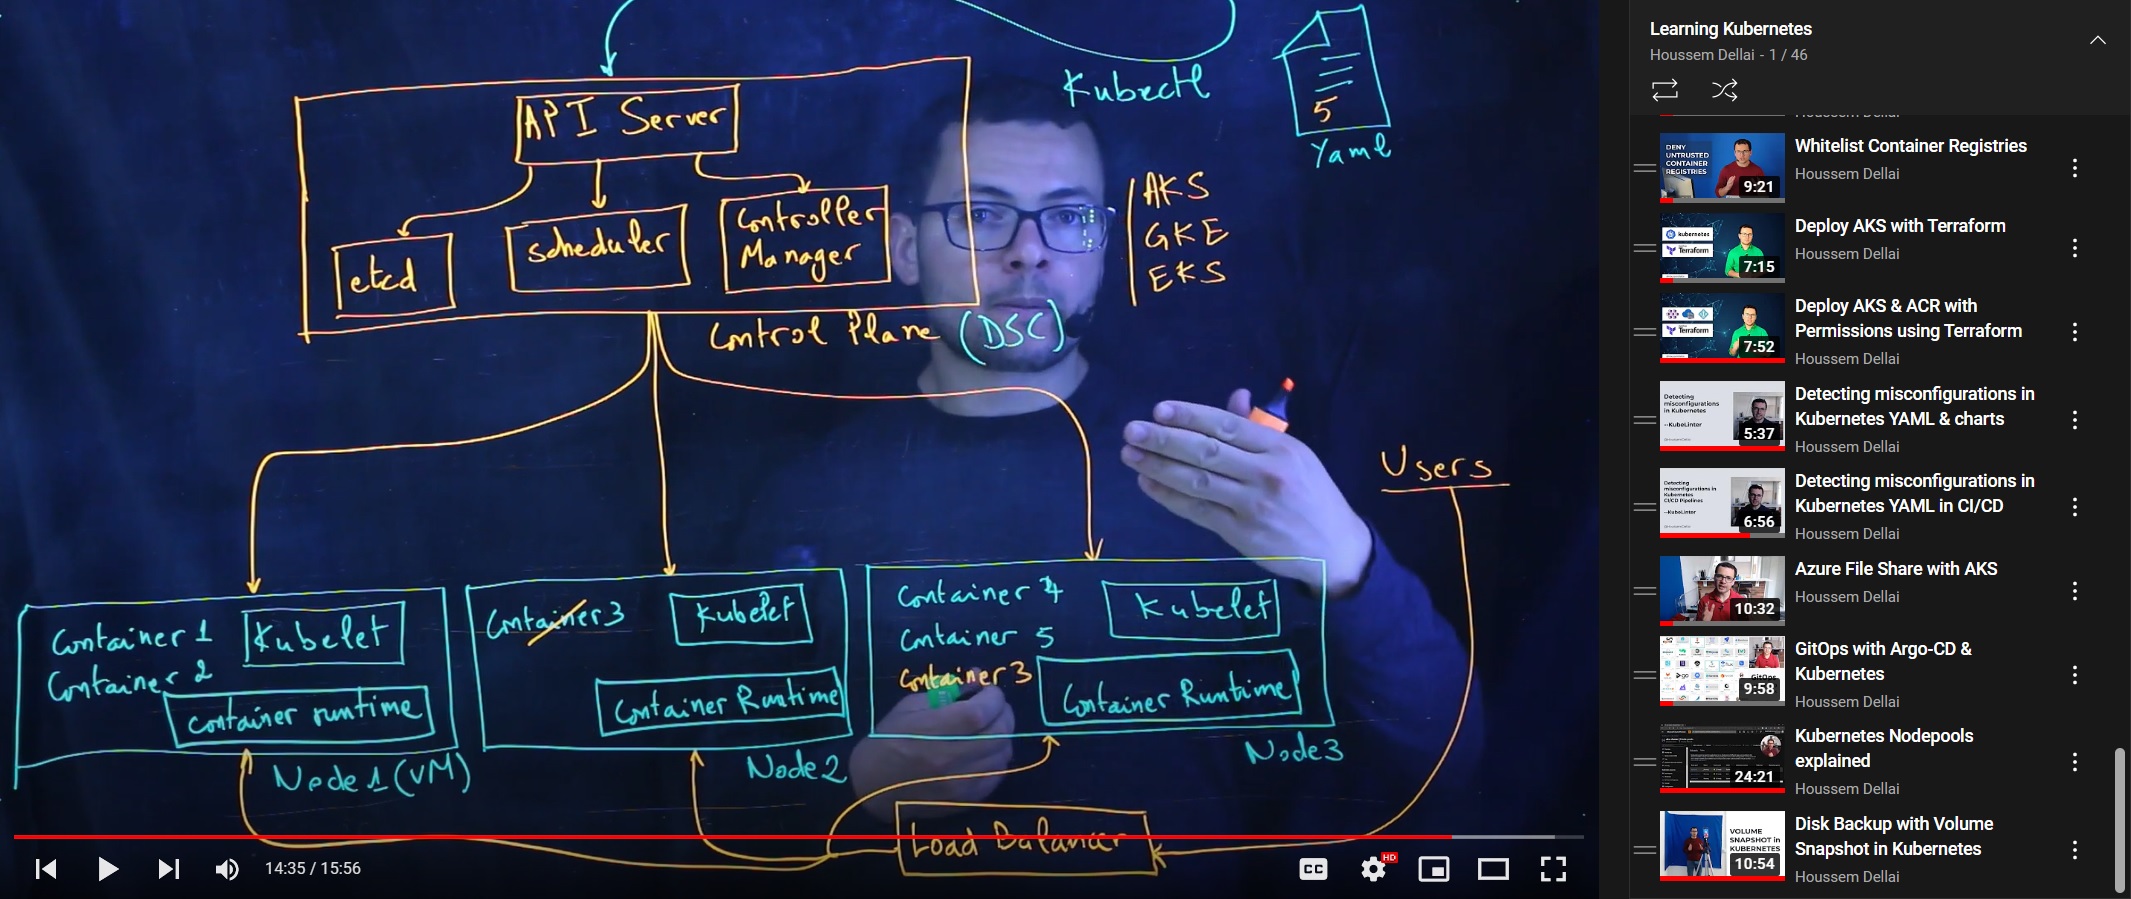 Kubectl
5
Yaml
API Server
etcd
scheduler
Controller
Manager
Control Plane (DSC)
AKS
GKE
EKS
Users
Container 1
Container 2
Kubelet
container runtime
Node1 (VM)
Container3
Kubelet
Container Runtime
Node2
Container 4
Container 5
Container 3
Kubelet
Container Runtime
Node3
Load Balancer
14:35 / 15:56
CC
HD
Learning Kubernetes
Houssem Dellai - 1 / 46
Houssem Dellai
DENY
UNTRUSTED
CONTAINER
REGISTRIES
9:21
Whitelist Container Registries
Houssem Dellai
kubernetes
Terraform
7:15
Deploy AKS with Terraform
Houssem Dellai
Terraform
7:52
Deploy AKS & ACR with
Permissions using Terraform
Houssem Dellai
Detecting
misconfigurations
in Kubernetes
--KubeLinter
5:37
Detecting misconfigurations in
Kubernetes YAML & charts
Houssem Dellai
Detecting
misconfigurations in
Kubernetes
CI/CD Pipelines
--KubeLinter
6:56
Detecting misconfigurations in
Kubernetes YAML in CI/CD
Houssem Dellai
10:32
Azure File Share with AKS
Houssem Dellai
GitOps
9:58
GitOps with Argo-CD &
Kubernetes
Houssem Dellai
24:21
Kubernetes Nodepools
explained
Houssem Dellai
VOLUME
SNAPSHOT in
KUBERNETES
10:54
Disk Backup with Volume
Snapshot in Kubernetes
Houssem Dellai